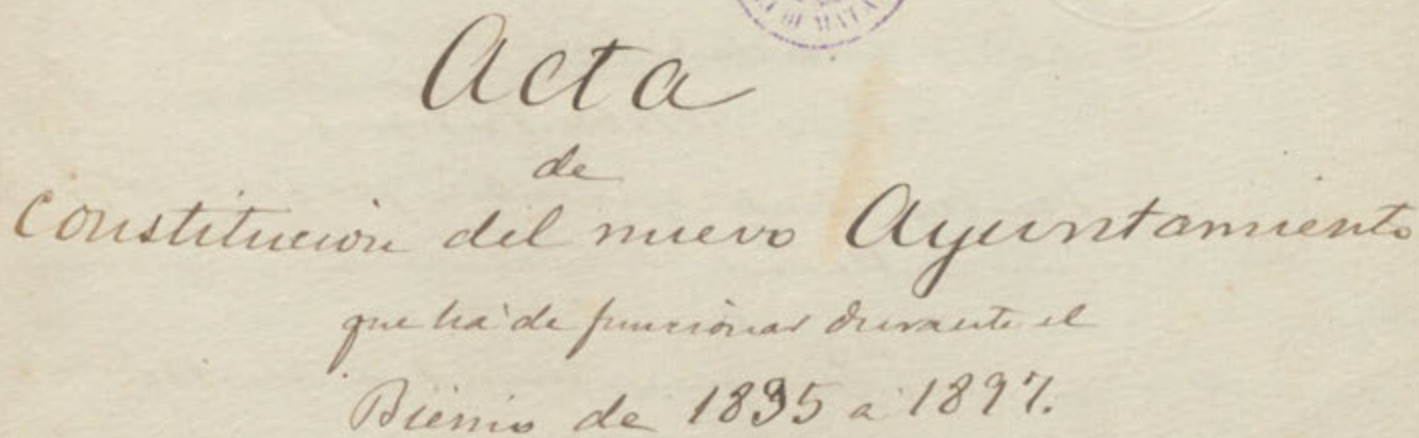 Acta
de
Constitucion del nuevo Ayuntamiento
que ha de funcionar durante el
Bienio de 1895 a 1897.